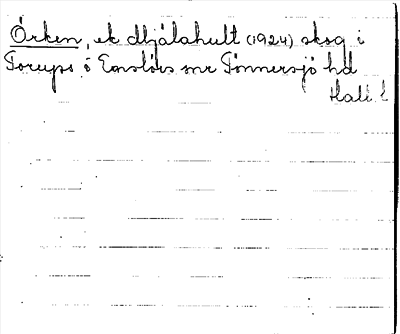 Örken, ek Mjälahult (1924) skog i
Torups o Enslövs snr Tönnersjö hd
Hall l